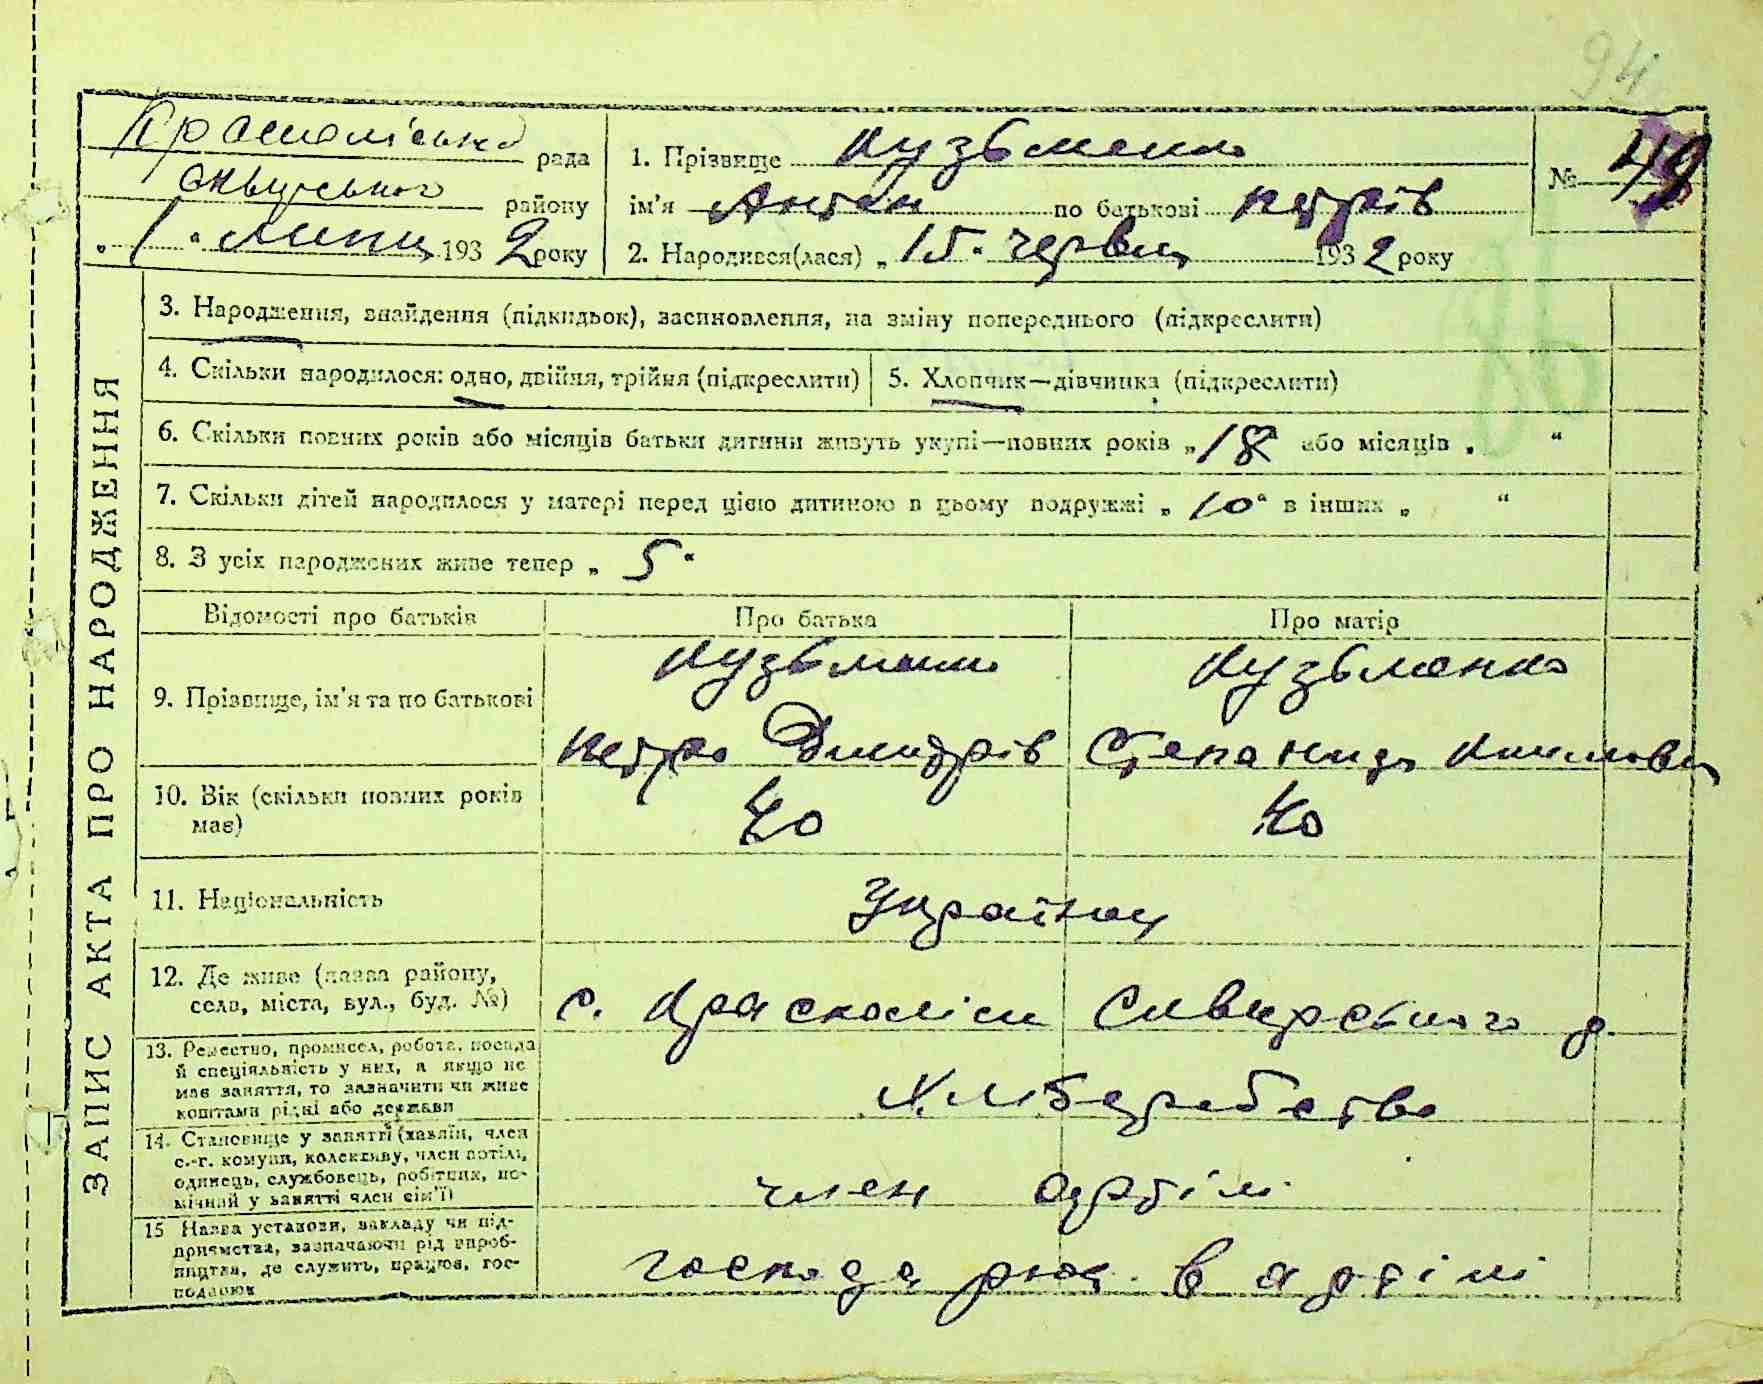 94
рада 1. Прізвище Кузьменко № 49
району ім'я Антон по батькові Петрів
„ 1 “ липця 1932 року 2. Народився(лася) „ 15 “ червця 1932 року
ЗАПИС АКТА ПРО НАРОДЖЕННЯ
3. Народження, знайдення (підкидьок), засиновлення, на зміну попереднього (підкреслити)
4. Скільки народилося: одно, двійня, трійня (підкреслити) 5. Хлопчик—дівчинка (підкреслити)
6. Скільки повних років або місяців батьки дитини живуть укупі—повних років „ 18 або місяців „ “
7. Скільки дітей народилося у матері перед цією дитиною в цьому подружжі „ 10 “ в інших „ “
8. З усіх народжених живе тепер „ 5 “
Відомості про батьків Про батька Про матір
Кузьменко Кузьменко
9. Прізвище, ім'я та по батькові
Петро Дмитрів Степанида
10. Вік (скільки повних років має) 40 40
11. Національність Українці
12. Де живе (назва району, села, міста, вул., буд. №) с. Красноліси Сквирського р.
13. Ремество, промисел, робота, посада й спеціяльність у них, а якщо не має заняття, то зазначити чи живе коштами рідні або держави
Хліборобство
14. Становище у занятті (хазяїн, член с.-г. комуни, колективу, член артілі, одинець, службовець, робітник, помічний у занятті член сім'ї)
член артілі
15 Назва установи, закладу чи підприємства, зазначаючи рід виробництва, де служить, працює, господарює
господарює в артілі